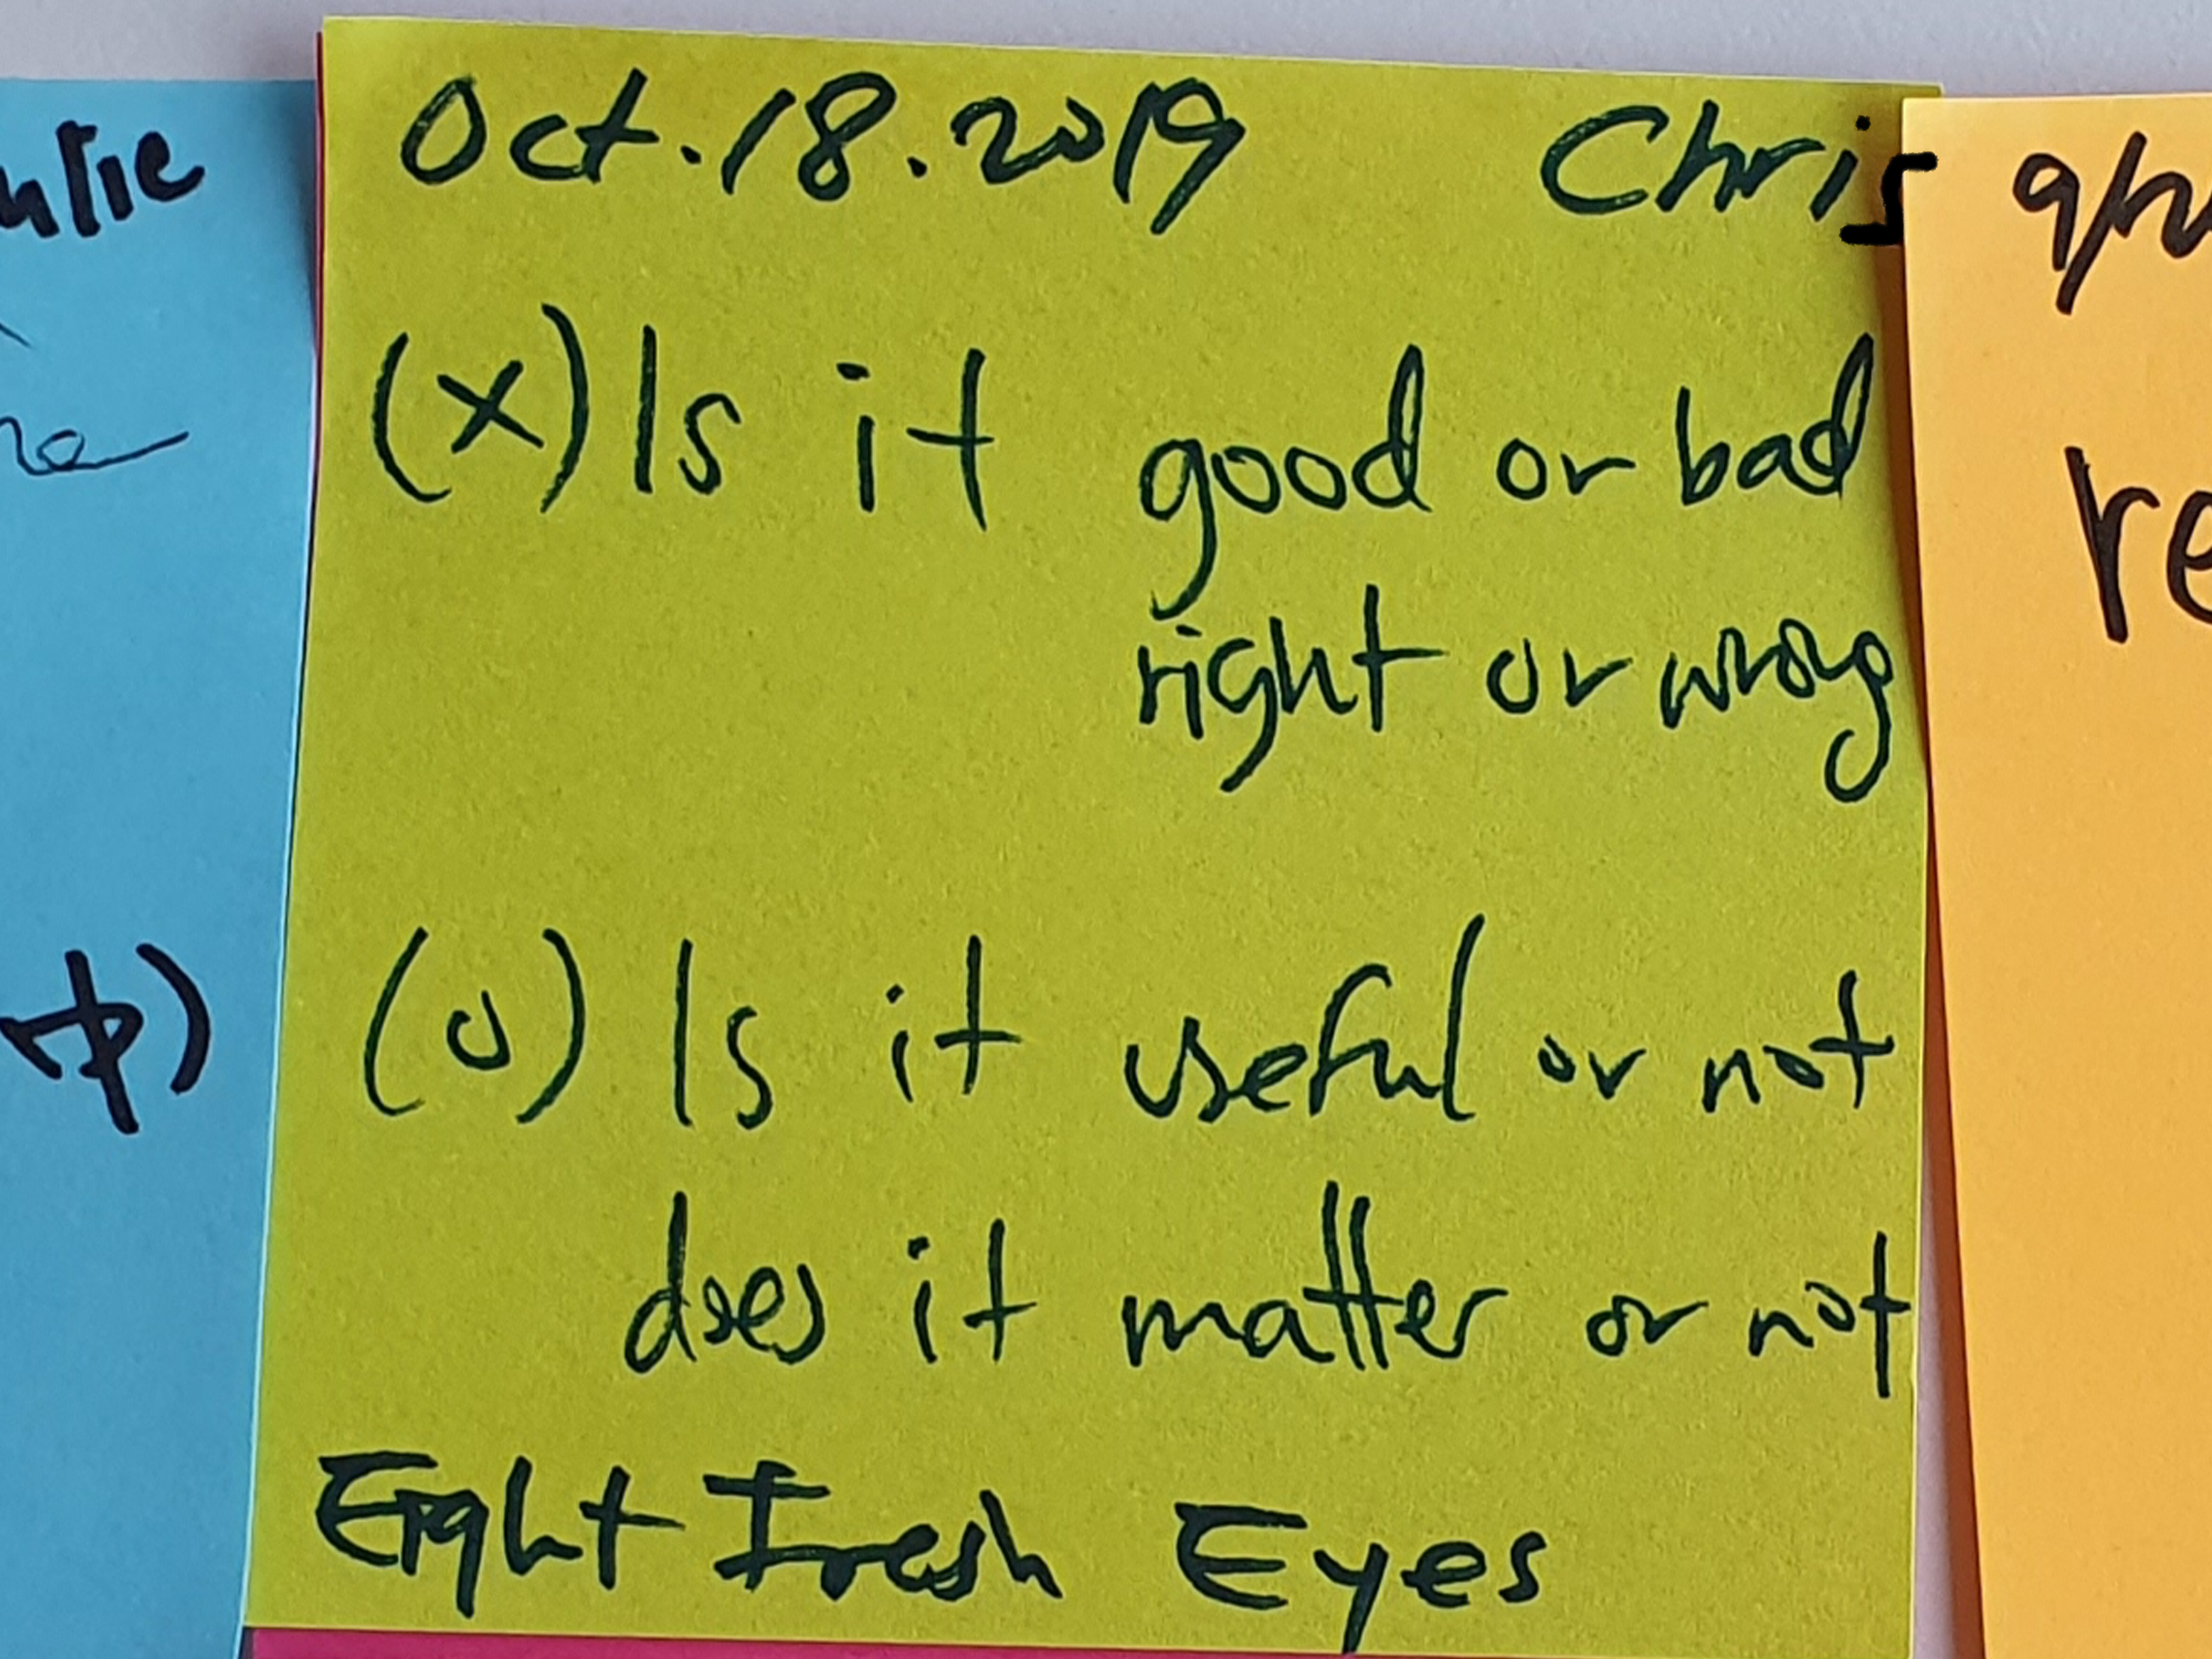 Oct.18.2019 Chris
(x) Is it good or bad
right or wrong
(o) Is it useful or not
does it matter or not
Eight Fresh Eyes
re